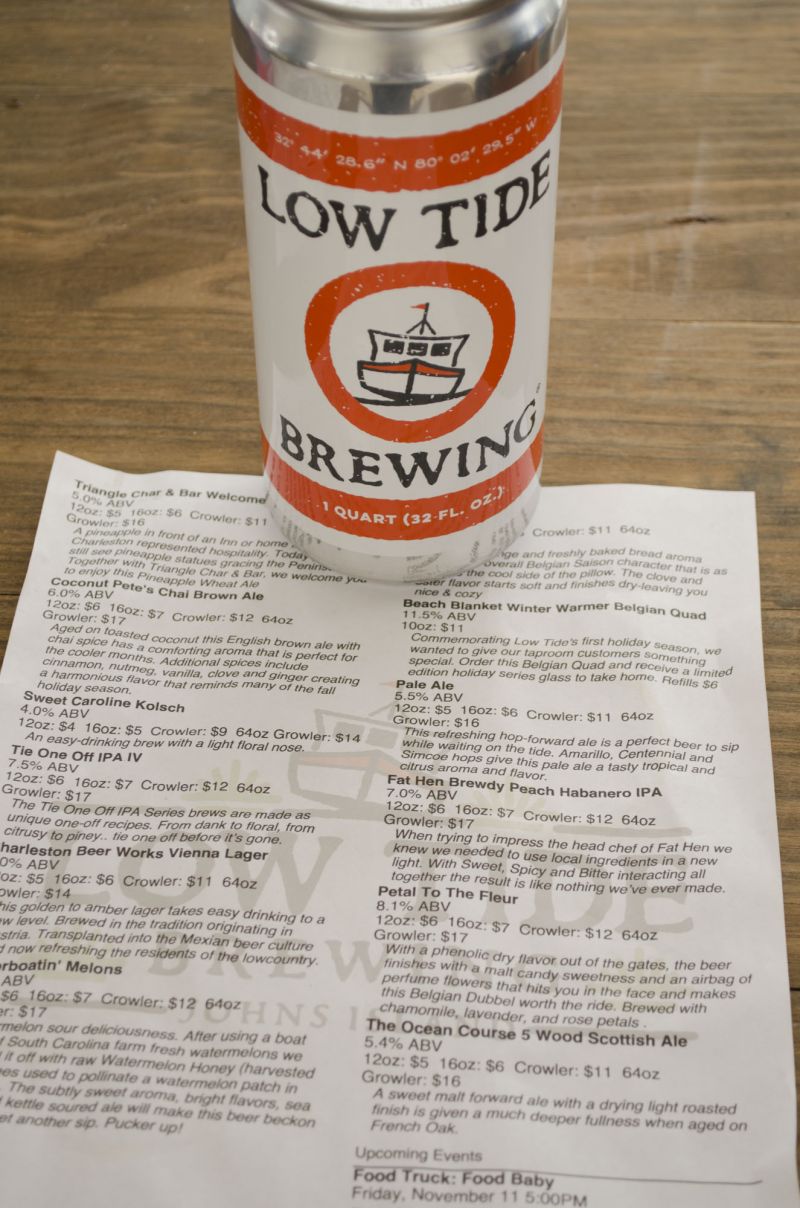 32° 44' 28.6" N 80° 02' 29.5" W
LOW TIDE
BREWING
1 QUART (32 FL. OZ.)
Triangle Char & Bar Welcome
5.0% ABV
12oz: $5 16oz: $6 Crowler: $11
Growler: $16
A pineapple in front of an Inn or home
Charleston represented hospitality. Today
still see pineapple statues gracing the
Together with Triangle Char & Bar, we welcome you
to enjoy this Pineapple Wheat Ale
Coconut Pete's Chai Brown Ale
6.0% ABV
12oz: $6 16oz: $7 Crowler: $12 64oz
Growler: $17
Aged on toasted coconut this English brown ale with
chai spice has a comforting aroma that is perfect for
the cooler months. Additional spices include
cinnamon, nutmeg, vanilla, clove and ginger creating
a harmonious flavor that reminds many of the fall
holiday season.
Sweet Caroline Kolsch
4.0% ABV
12oz: $4 16oz: $5 Crowler: $9 64oz Growler: $14
An easy-drinking brew with a light floral nose.
Tie One Off IPA IV
7.5% ABV
12oz: $6 16oz: $7 Crowler: $12 64oz
Growler: $17
The Tie One Off IPA Series brews are made as
unique one-off recipes. From dank to floral, from
citrusy to piney.. tie one off before it's gone.
harleston Beer Works Vienna Lager
0% ABV
oz: $5 16oz: $6 Crowler: $11 64oz
owler: $14
his golden to amber lager takes easy drinking to a
w level. Brewed in the tradition originating in
stria. Transplanted into the Mexian beer culture
d now refreshing the residents of the lowcountry.
rboatin' Melons
ABV
$6 16oz: $7 Crowler: $12 64oz
r: $17
rmelon sour deliciousness. After using a boat
f South Carolina farm fresh watermelons we
it off with raw Watermelon Honey (harvested
es used to pollinate a watermelon patch in
. The subtly sweet aroma, bright flavors, sea
kettle soured ale will make this beer beckon
et another sip. Pucker up!
Crowler: $11 64oz
nge and freshly baked bread aroma
overall Belgian Saison character that is as
the cool side of the pillow. The clove and
flavor starts soft and finishes dry-leaving you
nice & cozy
Beach Blanket Winter Warmer Belgian Quad
11.5% ABV
10oz: $11
Commemorating Low Tide's first holiday season, we
wanted to give our taproom customers something
special. Order this Belgian Quad and receive a limited
edition holiday series glass to take home. Refills $6
Pale Ale
5.5% ABV
12oz: $5 16oz: $6 Crowler: $11 64oz
Growler: $16
This refreshing hop-forward ale is a perfect beer to sip
while waiting on the tide. Amarillo, Centennial and
Simcoe hops give this pale ale a tasty tropical and
citrus aroma and flavor.
Fat Hen Brewdy Peach Habanero IPA
7.0% ABV
12oz: $6 16oz: $7 Crowler: $12 64oz
Growler: $17
When trying to impress the head chef of Fat Hen we
knew we needed to use local ingredients in a new
light. With Sweet, Spicy and Bitter interacting all
together the result is like nothing we've ever made.
Petal To The Fleur
8.1% ABV
12oz: $6 16oz: $7 Crowler: $12 64oz
Growler: $17
With a phenolic dry flavor out of the gates, the beer
finishes with a malt candy sweetness and an airbag of
perfume flowers that hits you in the face and makes
this Belgian Dubbel worth the ride. Brewed with
chamomile, lavender, and rose petals .
The Ocean Course 5 Wood Scottish Ale
5.4% ABV
12oz: $5 16oz: $6 Crowler: $11 64oz
Growler: $16
A sweet malt forward ale with a drying light roasted
finish is given a much deeper fullness when aged on
French Oak.
Upcoming Events
Food Truck: Food Baby
Friday, November 11 5:00PM